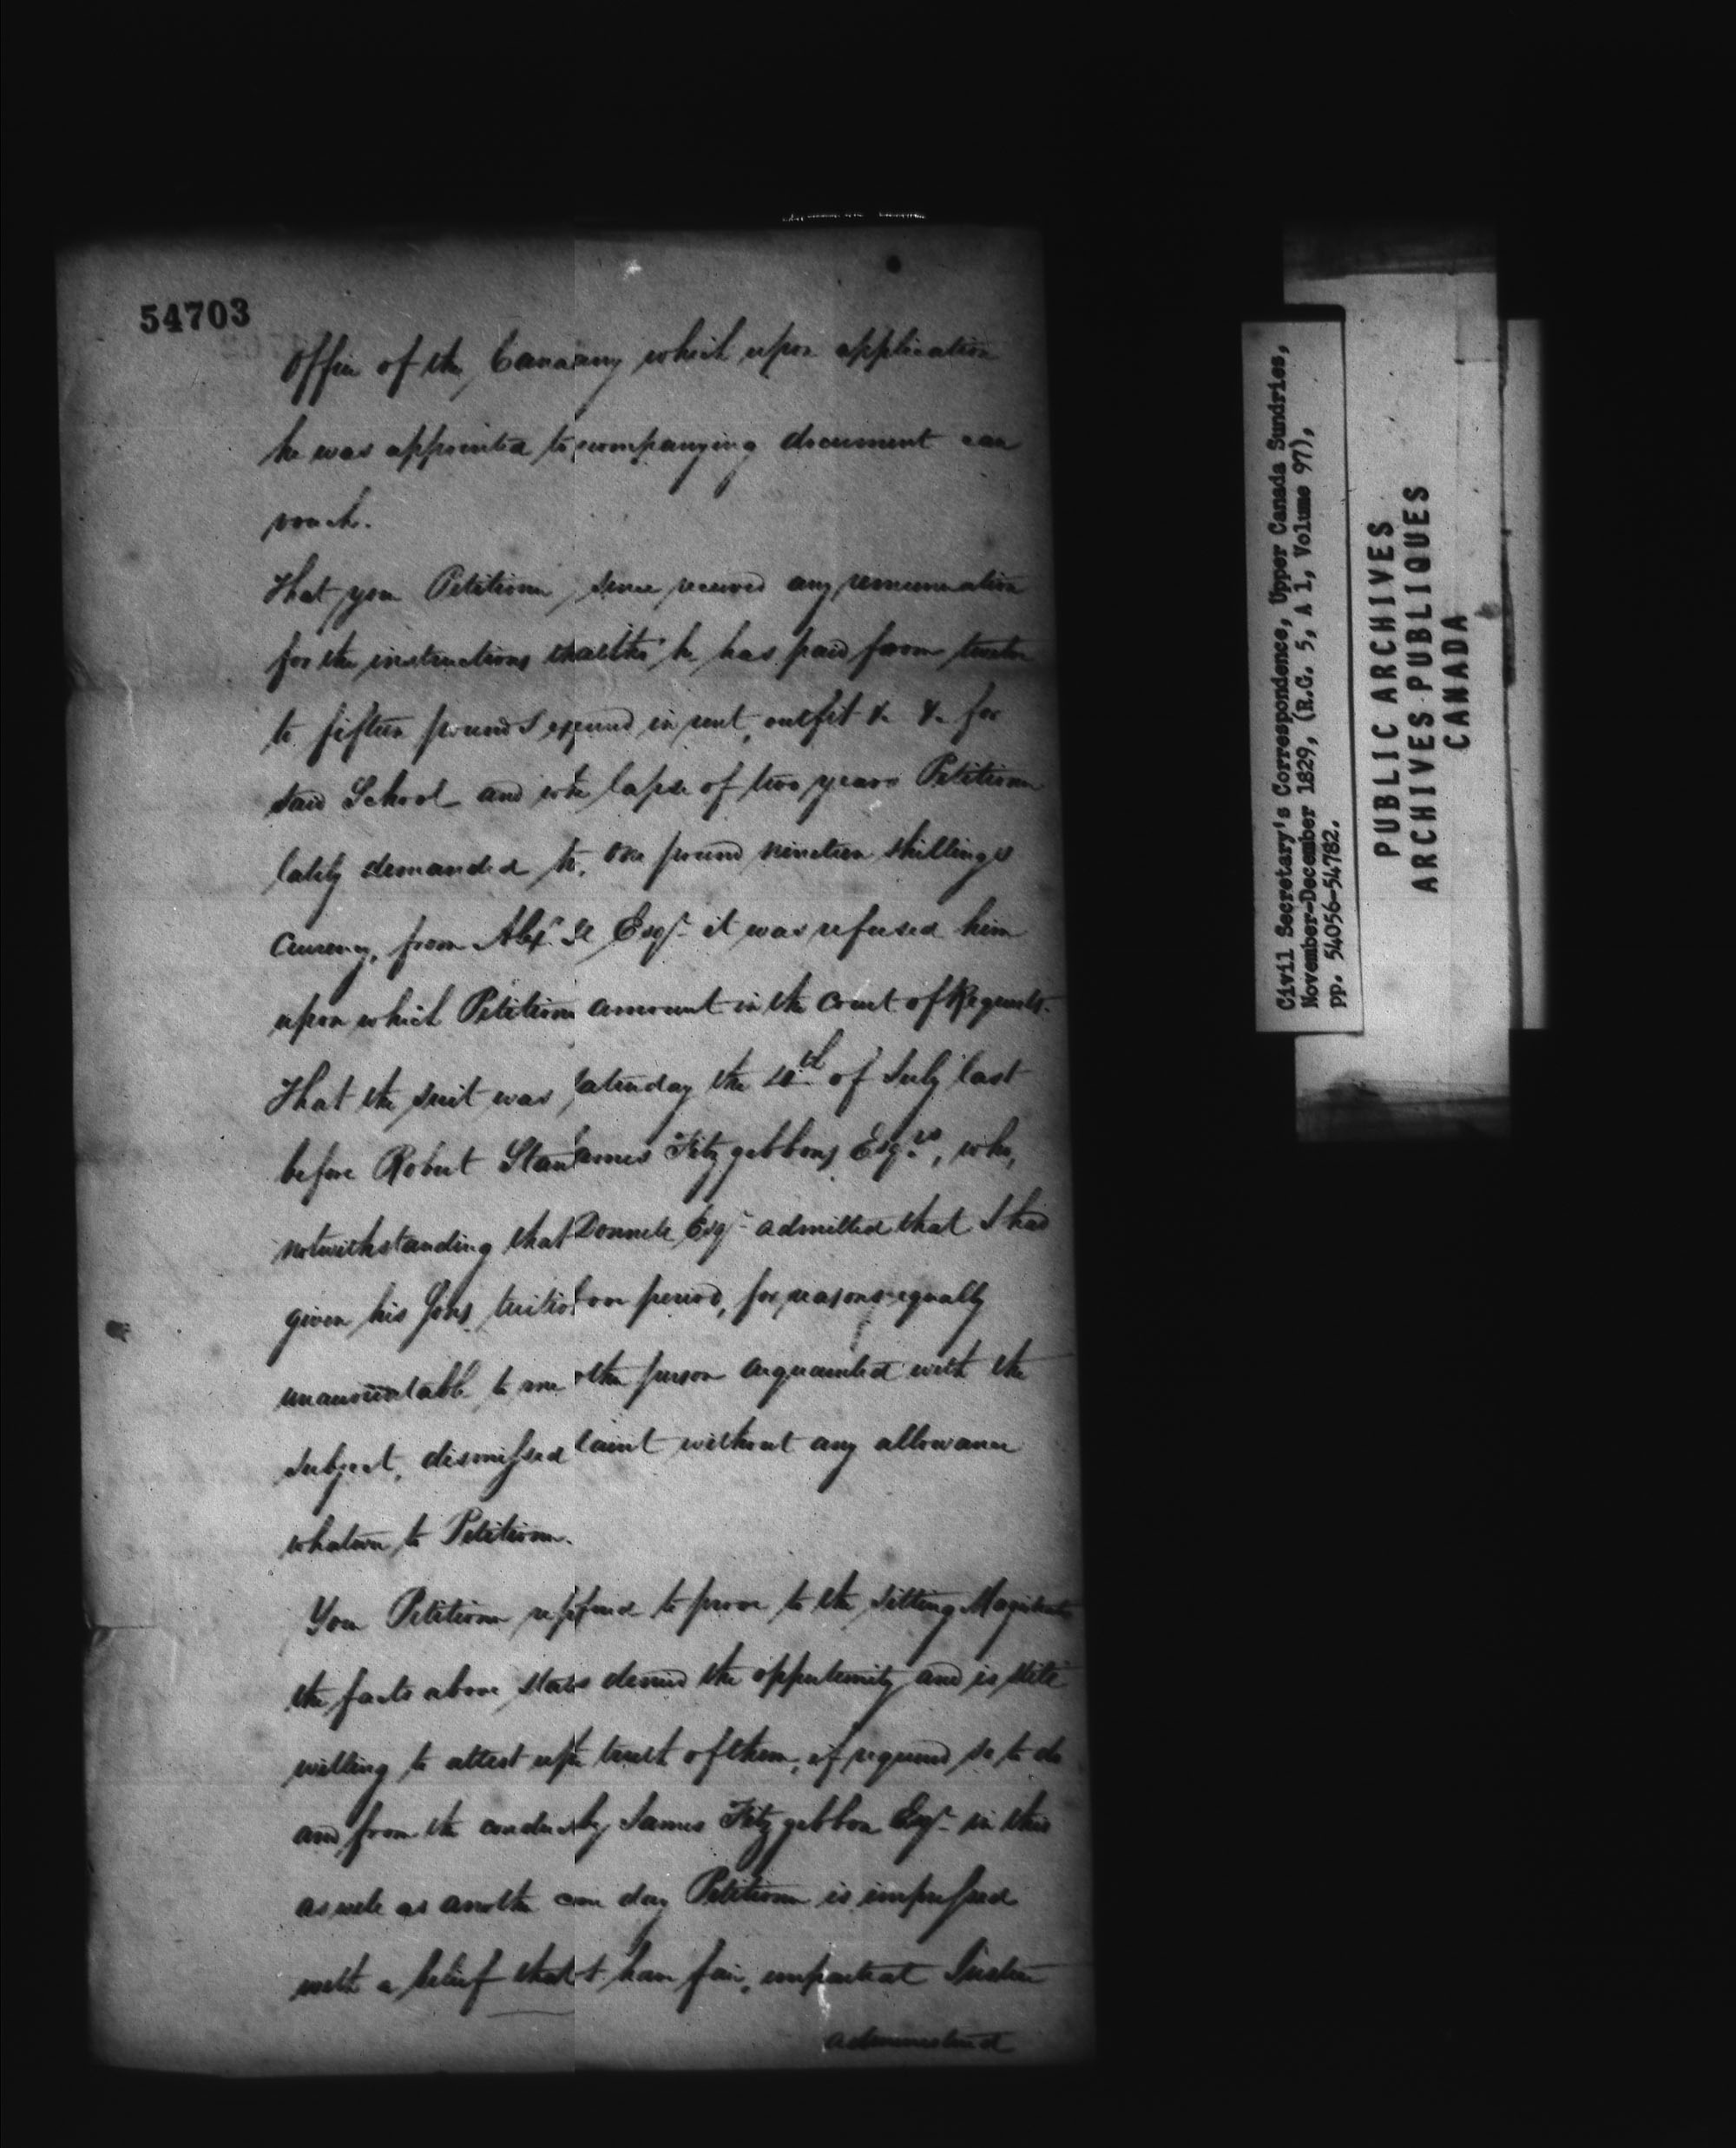 54703
Office of the Canaany which upon application
he was appointed to companying document can
vouch.
That your Petitioner since received any remuneration
for the instructions tha altho' he has paid from twelve
to fifteen pounds expend in rent, outfit &. &. for
said School and wh lapse of two years Petitioner
lately demanded the, one pound nineteen shillings
Currency, from Alexr. Esqr. it was refused him
upon which Petitioner amount in the Court of Requests.
That the suit was Saturday the 10th of July last
before Robert Stanames Fitzgibbons Esqrs, who,
notwithstanding that Donnell Esqr admitted that I had
given his Sons tuition period, for reasons equally
unaccountable to me other person acquainted with the
subject, dismissed laint without any allowance
whatever to Petitioner.
Your Petitioner to prove to the Sitting Magistrates
the facts above states denied the oppertunity and is still
willing to attest up truth of them, if required so to do
and from the conduct by James Fitzgibbon Esqr in this
as well as another day Petitioner is impressed
with a belief that have fair, impartial Justice
administered
Civil Secretary's Correspondence, Upper Canada Sundries,
November-December 1829, (R.G. 5, A 1, Volume 97),
pp. 54056-54782.
PUBLIC ARCHIVES
ARCHIVES PUBLIQUES
CANADA